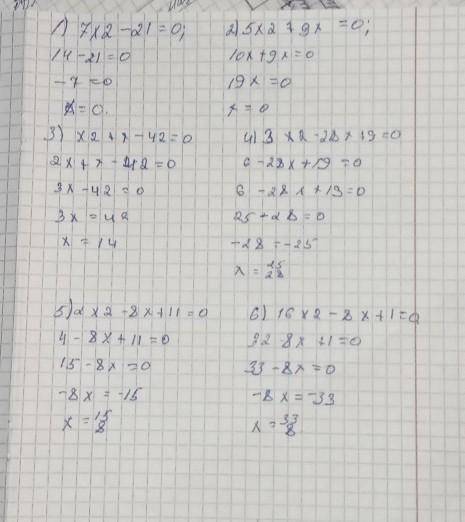 1) 7x2-21=0;
14-21=0
-7=0
x=0.
2) 5x2+9x=0;
10x+9x=0
19x=0
x=0
3) x2+x-42=0
2x+x-42=0
3x-42=0
3x=42
x=14
4) 3x2-28x+9=0
6-28x+19=0
6-28x+19=0
25-28=0
-28=-25
x=25/28
5) 2x2-8x+11=0
4-8x+11=0
15-8x=0
-8x=-15
x=15/8
6) 16x2-8x+1=0
32-8x+1=0
33-8x=0
-8x=-33
x=33/8